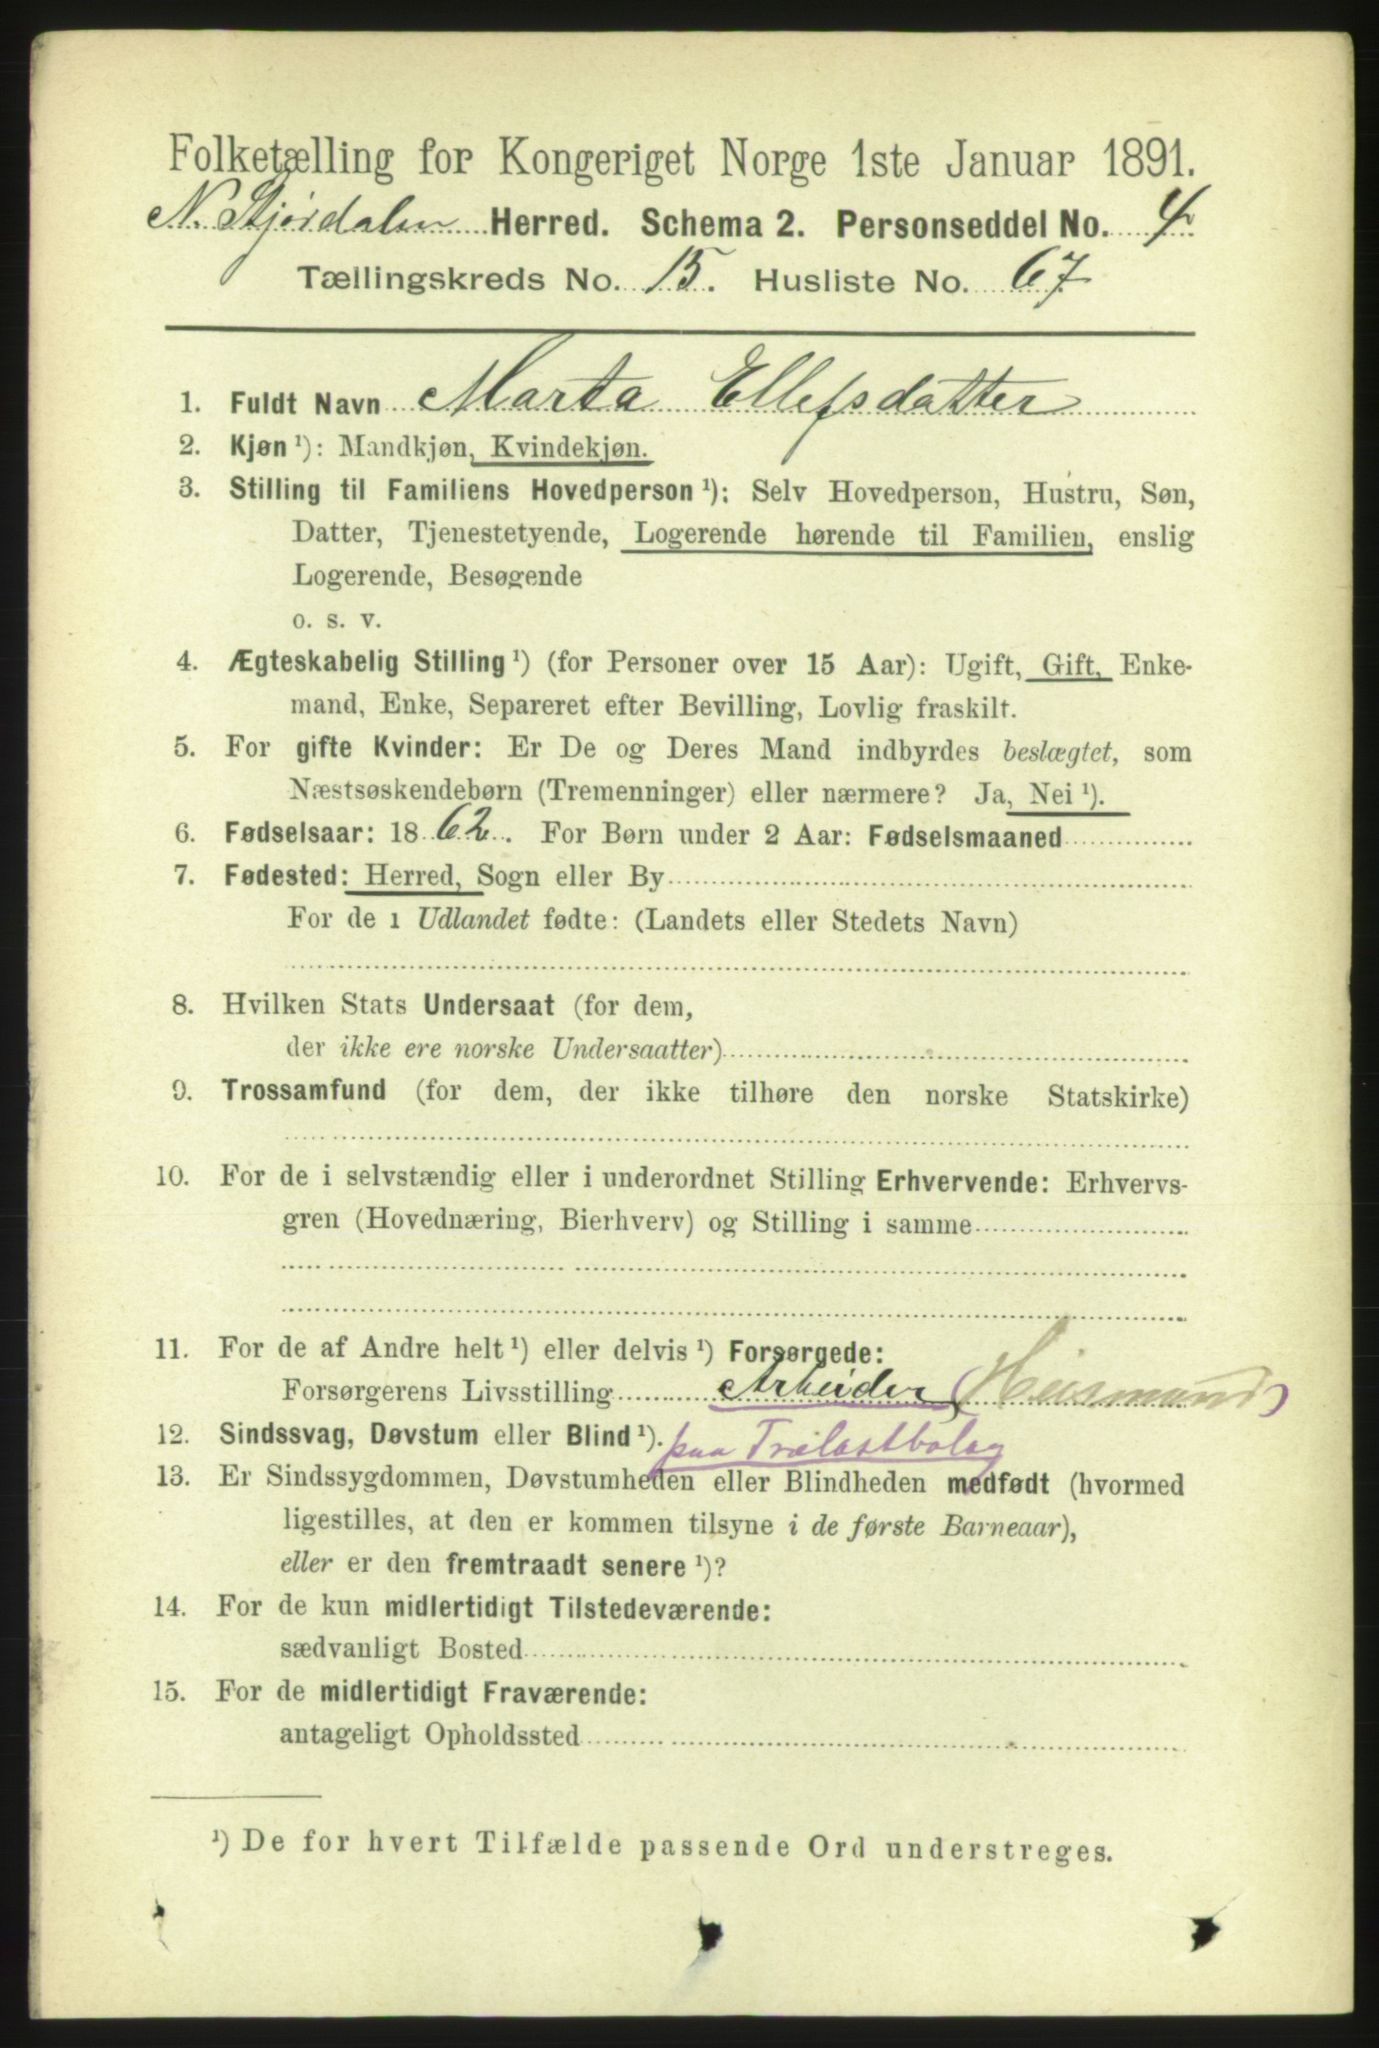 Folketælling for Kongeriget Norge 1ste Januar 1891.
N. Stjørdalen Herred. Schema 2. Personseddel No. 4
Tællingskreds No. 15. Husliste No. 67
1. Fuldt Navn Marta Ellefsdatter
2. Kjøn ¹): Mandkjøn, Kvindekjøn.
3. Stilling til Familiens Hovedperson ¹): Selv Hovedperson, Hustru, Søn,
Datter, Tjenestetyende, Logerende hørende til Familien, enslig
Logerende, Besøgende
o. s. v.
4. Ægteskabelig Stilling ¹) (for Personer over 15 Aar): Ugift, Gift, Enke-
mand, Enke, Separeret efter Bevilling, Lovlig fraskilt.
5. For gifte Kvinder: Er De og Deres Mand indbyrdes beslægtet, som
Næstsøskendebørn (Tremenninger) eller nærmere? Ja, Nei ¹).
6. Fødselsaar: 1862. For Børn under 2 Aar: Fødselsmaaned
7. Fødested: Herred, Sogn eller By
For de i Udlandet fødte: (Landets eller Stedets Navn)
8. Hvilken Stats Undersaat (for dem,
der ikke ere norske Undersaatter)
9. Trossamfund (for dem, der ikke tilhøre den norske Statskirke)
10. For de i selvstændig eller i underordnet Stilling Erhvervende: Erhvervs-
gren (Hovednæring, Bierhverv) og Stilling i samme
11. For de af Andre helt ¹) eller delvis ¹) Forsørgede:
Forsørgerens Livsstilling Arbeider (Heismand)
12. Sindssvag, Døvstum eller Blind ¹). paa Trælastbolag
13. Er Sindssygdommen, Døvstumheden eller Blindheden medfødt (hvormed
ligestilles, at den er kommen tilsyne i de første Barneaar),
eller er den fremtraadt senere ¹)?
14. For de kun midlertidigt Tilstedeværende:
sædvanligt Bosted
15. For de midlertidigt Fraværende:
antageligt Opholdssted
¹) De for hvert Tilfælde passende Ord understreges.